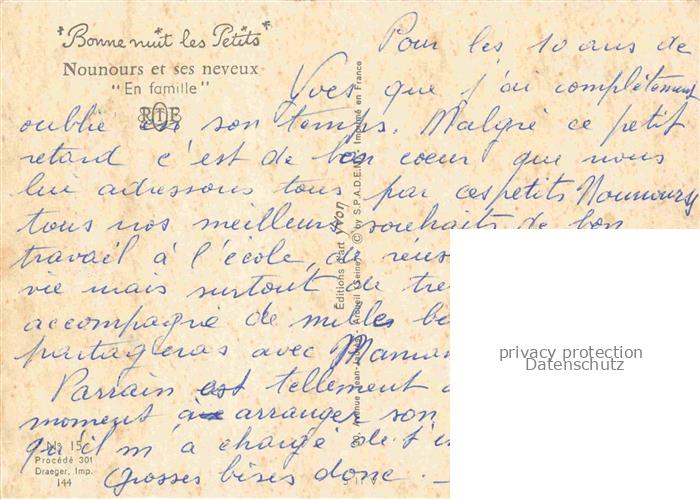 *Bonne nuit les Petits*
Nounours et ses neveux
"En famille"
RTB
Pour les 10 ans de
Yves que j'ai complètement
oublié en son temps. Malgré ce petit
retard c'est de bon coeur que nous
lui adressons tous par ces petits Nounours
tous nos meilleurs souhaits de bon
travail à l'école, de
vie mais surtout de
accompagné de milles
partageras avec Maman
Parrain est tellement
moment à arranger son
qu'il m'a chargé de
Grosses bises donc. _
Nº 15
Procédé 301
Draeger, Imp.
144
Editions d'art yvon
Avenue Jean-Jaurès - Arcueil (Seine) © by S.P.A.D.E.M. Imprimé en France
privacy protection
Datenschutz